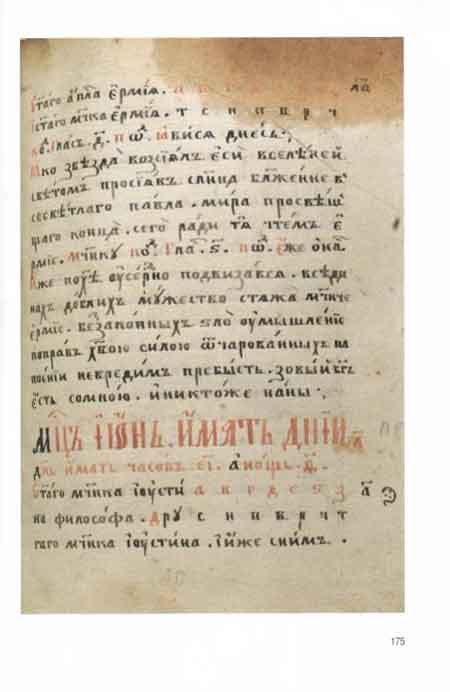 стаго ап҇ла ермїа.
стаго мч҃нка ермїа. т с н и в р ч
ко҇. гласъ. д҃. по҇. ꙗвисѧ днесь.
ꙗко ѕвѣзда возсїѧлъ еси вселѣннѣй.
свѣтомъ просїѧвъ слн҃ца блаженне в
павла. мира просвѣщ
шаго конца. сего ради тѧ чтемъ е
рмїе. мч҃нку ко҇. гла҇. ѕ҃. по҇. еже о на҇.
подвизавсѧ.
доблихъ мужество стѧжа мч҃нче
ермїе. беззаконныхъ ѕло оумышленїе
поправъ хв҃ою силою ѿ чарованныхъ на
поенїи невредимъ пребысть. зовый бг҃ъ
есть со мною. и никтоже на ны.
мц҃ъ їюнь. имать днїи л҃
дн҃ь имать часовъ еі҃. а нощь. д҃.
стаго мч҃нка їоусти а в г д е ѕ з а҃
на философа. дру с н и в р ч т
гаго мч҃нка їоустина. и иже с нимъ.
175